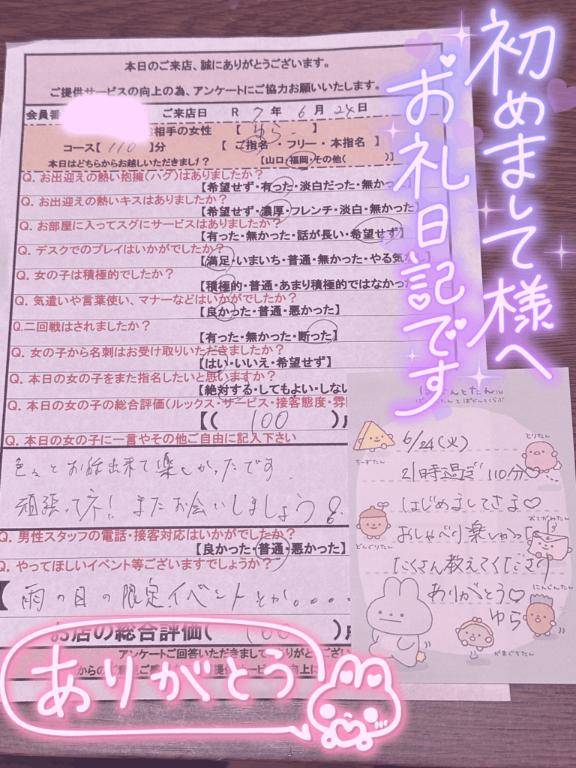 初めまして様へ
お礼日記です
本日のご来店、誠にありがとうございます。
ご提供サービスの向上の為、アンケートにご協力お願いいたします。
会員番 ご来店日 R 7年 6月 24日
お相手の女性 【 ゆら 】
コース【 110 】分 【 ご指名・フリー・本指名】
本日はどちらからお越しいただきました? 【山口・福岡・その他( )】
Q. お出迎えの熱い抱擁(ハグ)はありましたか?
【希望せず・有った・淡白だった・無かっ
Q. お出迎えの熱いキスはありましたか?
【希望せず・濃厚・フレンチ・淡白・無かっ
Q. お部屋に入ってスグにサービスはありましたか?
【有った・無かった・話が長い・希望せず】
Q. デスクでのプレイはいかがでしたか?
【満足・いまいち・普通・無かった・やる気
Q. 女の子は積極的でしたか?
【積極的・普通・あまり積極的ではなかっ
Q. 気遣いや言葉使い、マナーなどはいかがでしたか?
【良かった・普通・悪かった】
Q.二回戦はされましたか?
【有った・無かった・断った】
Q. 女の子から名刺はお受け取りいただきましたか?
【はい・いいえ・希望せず】
Q. 本日の女の子をまた指名したいと思いますか?
【絶対する・してもよい・しない
Q. 本日の女の子の総合評価(ルックス・サービス・接客態度・雰
【( 100 )
Q. 本日の女の子に一言やその他ご自由に記入下さい
色々とお話出来て楽しかったです
頑張ってネ! またお会いしましょう
Q. 男性スタッフの電話・接客対応はいかがでしたか?
【良かった・普通・悪かった】
Q. やってほしいイベント等ございますでしょうか?
【 雨の日の限定イベントとか。。。。
お店の総合評価( 100 )
アンケートご回答いただきましてありがとうござい
ありがとう
6/24(火)
21時過ぎ 110分
はじめましてさま♡
おしゃべり楽しかっ
たくさん教えてくださり
ありがとう♡
ゆら
とりたん
ちーずたん
おてがみたん
どんぐりたん
にんじんたん
がまぐちたん